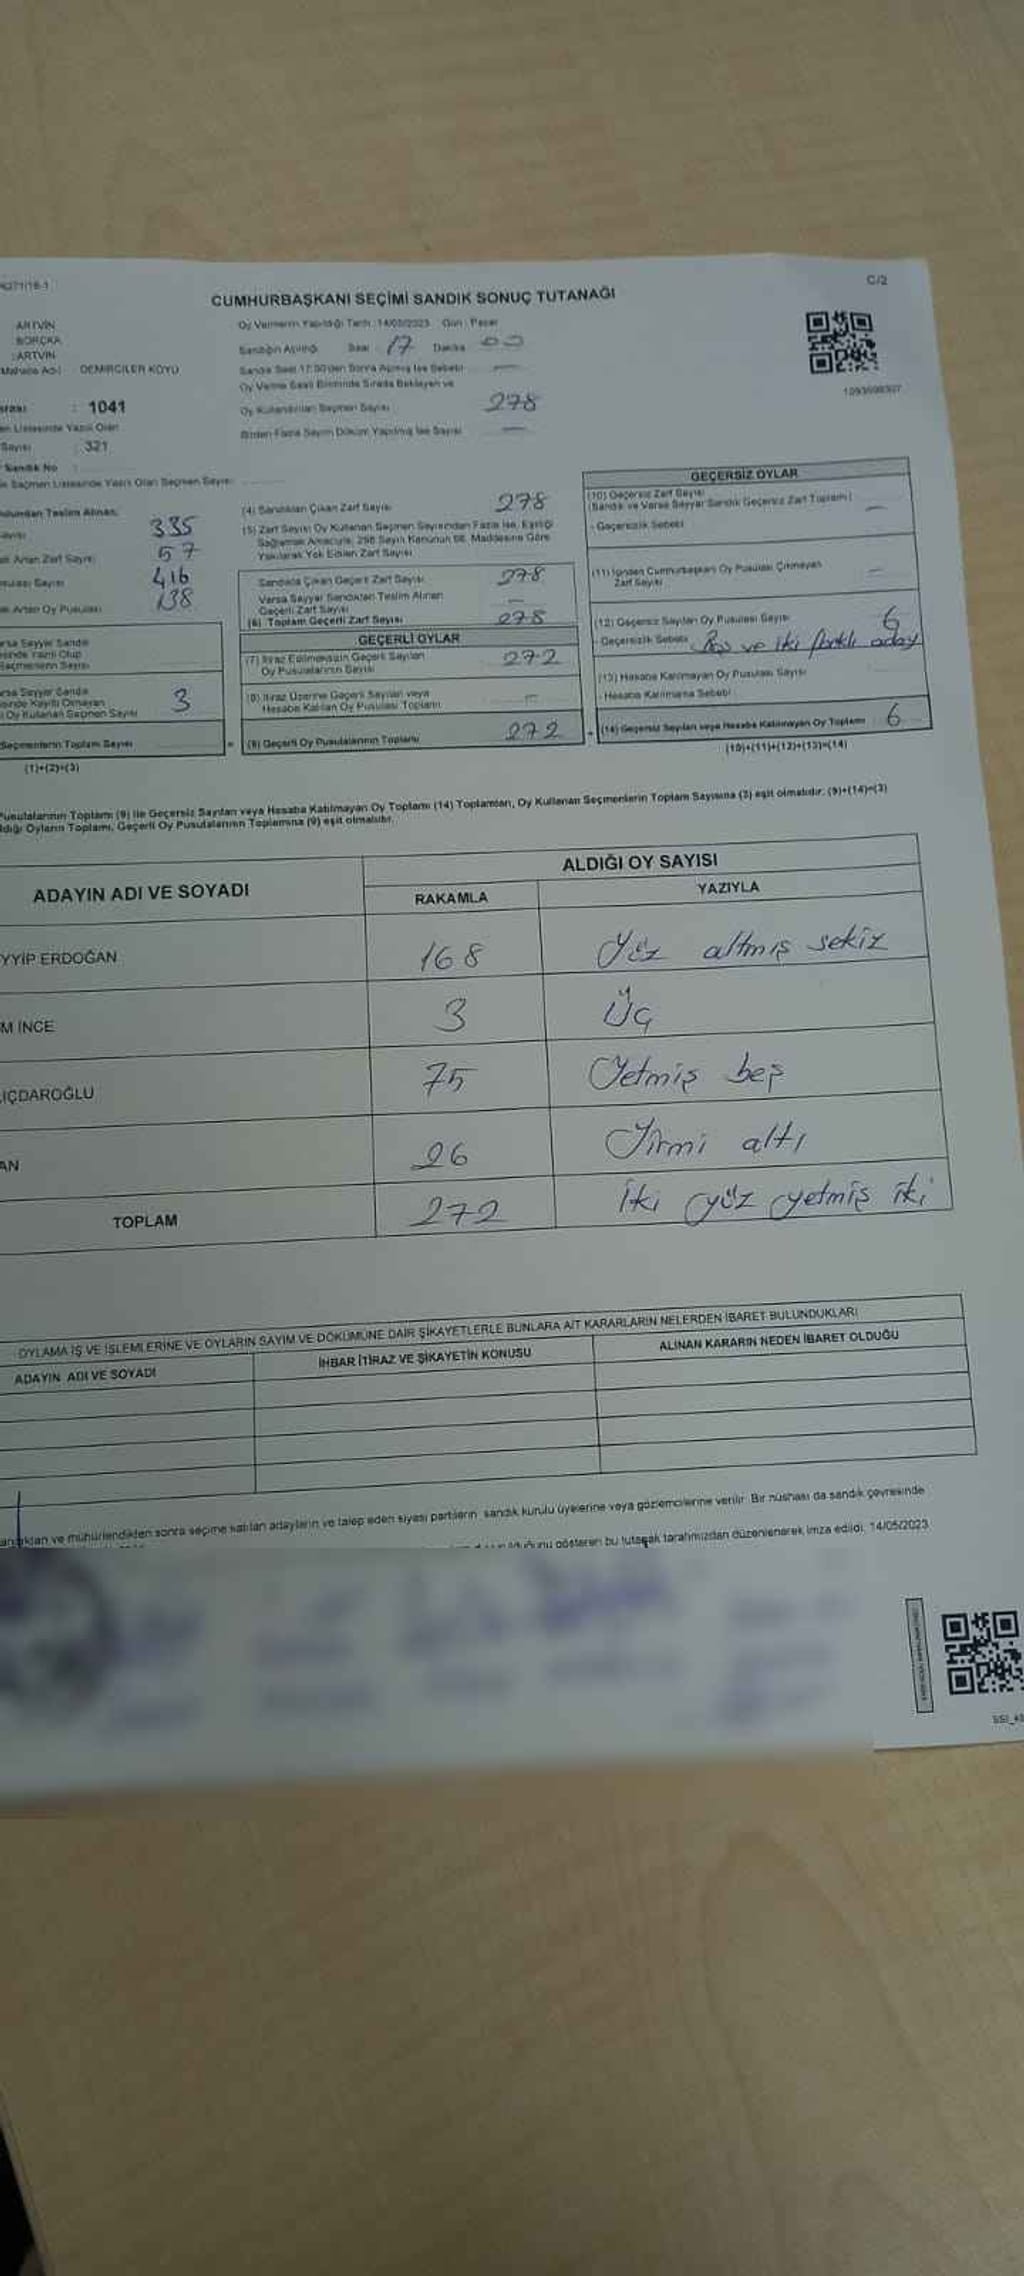 C/2
CUMHURBAŞKANI SEÇİMİ SANDIK SONUÇ TUTANAĞI
ARTVİN
BORÇKA
:ARTVİN
Mahalle Adı : DEMİRCİLER KÖYÜ
: 1041
en Listesinde Yazılı Olan
Sayısı : 321
Sandık No :
Seçmen Listesinde Yazılı Olan Seçmen Sayısı
Oy Vermenin Yapıldığı Tarih : 14/05/2023 Gün : Pazar
Sandığın Açıldığı Saat : 17 Dakika 00
Sandık Saat 17:00'den Sonra Açılmış İse Sebebi
Oy Verme Saati Bitiminde Sırada Bekleyen ve
Oy Kullandırılan Seçmen Sayısı 278
Birden Fazla Sayım Döküm Yapılmış İse Sayısı —
Teslim Alınan
335
Artan Zarf Sayısı 57
416
Artan Oy Pusulası 138
Varsa Seyyar Sandık
Yazılı Olup
Seçmenlerin Sayısı
Varsa Seyyar Sandık
Kayıtlı Olmayan
Oy Kullanan Seçmen Sayısı 3
Seçmenlerin Toplam Sayısı
(1)+(2)=(3)
(4) Sandıktan Çıkan Zarf Sayısı 278
(5) Zarf Sayısı Oy Kullanan Seçmen Sayısından Fazla İse, Eşitliği
Sağlamak Amacıyla, 298 Sayılı Kanunun 98. Maddesine Göre
Yakılarak Yok Edilen Zarf Sayısı
Sandıkta Çıkan Geçerli Zarf Sayısı 278
Varsa Seyyar Sandıktan Teslim Alınan
Geçerli Zarf Sayısı —
(6) Toplam Geçerli Zarf Sayısı 278
GEÇERLİ OYLAR
(7) İtiraz Edilmeksizin Geçerli Sayılan
Oy Pusulalarının Sayısı 272
(8) İtiraz Üzerine Geçerli Sayılan veya
Hesaba Katılan Oy Pusulası Toplamı —
(9) Geçerli Oy Pusulalarının Toplamı 272
GEÇERSİZ OYLAR
(10) Geçersiz Zarf Sayısı
(Sandık ve Varsa Seyyar Sandık Geçersiz Zarf Toplamı) —
- Geçersizlik Sebebi
(11) İçinden Cumhurbaşkanı Oy Pusulası Çıkmayan
Zarf Sayısı —
(12) Geçersiz Sayılan Oy Pusulası Sayısı 6
- Geçersizlik Sebebi Boş ve iki farklı aday
(13) Hesaba Katılmayan Oy Pusulası Sayısı
- Hesaba Katılmama Sebebi
(14) Geçersiz Sayılan veya Hesaba Katılmayan Oy Toplamı 6
(10)+(11)+(12)+(13)=(14)
Pusulalarının Toplamı (9) ile Geçersiz Sayılan veya Hesaba Katılmayan Oy Toplamı (14) Toplamları, Oy Kullanan Seçmenlerin Toplam Sayısına (3) eşit olmalıdır. (9)+(14)=(3)
Oyların Toplamı, Geçerli Oy Pusulalarının Toplamına (9) eşit olmalıdır.
ADAYIN ADI VE SOYADI
ALDIĞI OY SAYISI
RAKAMLA YAZIYLA
YYİP ERDOĞAN 168 Yüz altmış sekiz
M İNCE 3 Üç
IÇDAROĞLU 75 Yetmiş beş
AN 26 Yirmi altı
TOPLAM 272 İki yüz yetmiş iki
OYLAMA İŞ VE İŞLEMLERİNE VE OYLARIN SAYIM VE DÖKÜMÜNE DAİR ŞİKAYETLERLE BUNLARA AİT KARARLARIN NELERDEN İBARET BULUNDUKLARI
ADAYIN ADI VE SOYADI İHBAR İTİRAZ VE ŞİKAYETİN KONUSU ALINAN KARARIN NEDEN İBARET OLDUĞU
ve mühürlendikten sonra seçime katılan adayların ve talep eden siyasi partilerin sandık kurulu üyelerine veya gözlemcilerine verilir. Bir nüshası da sandık çevresinde
gösteren bu tutanak tarafımızdan düzenlenerek imza edildi. 14/05/2023